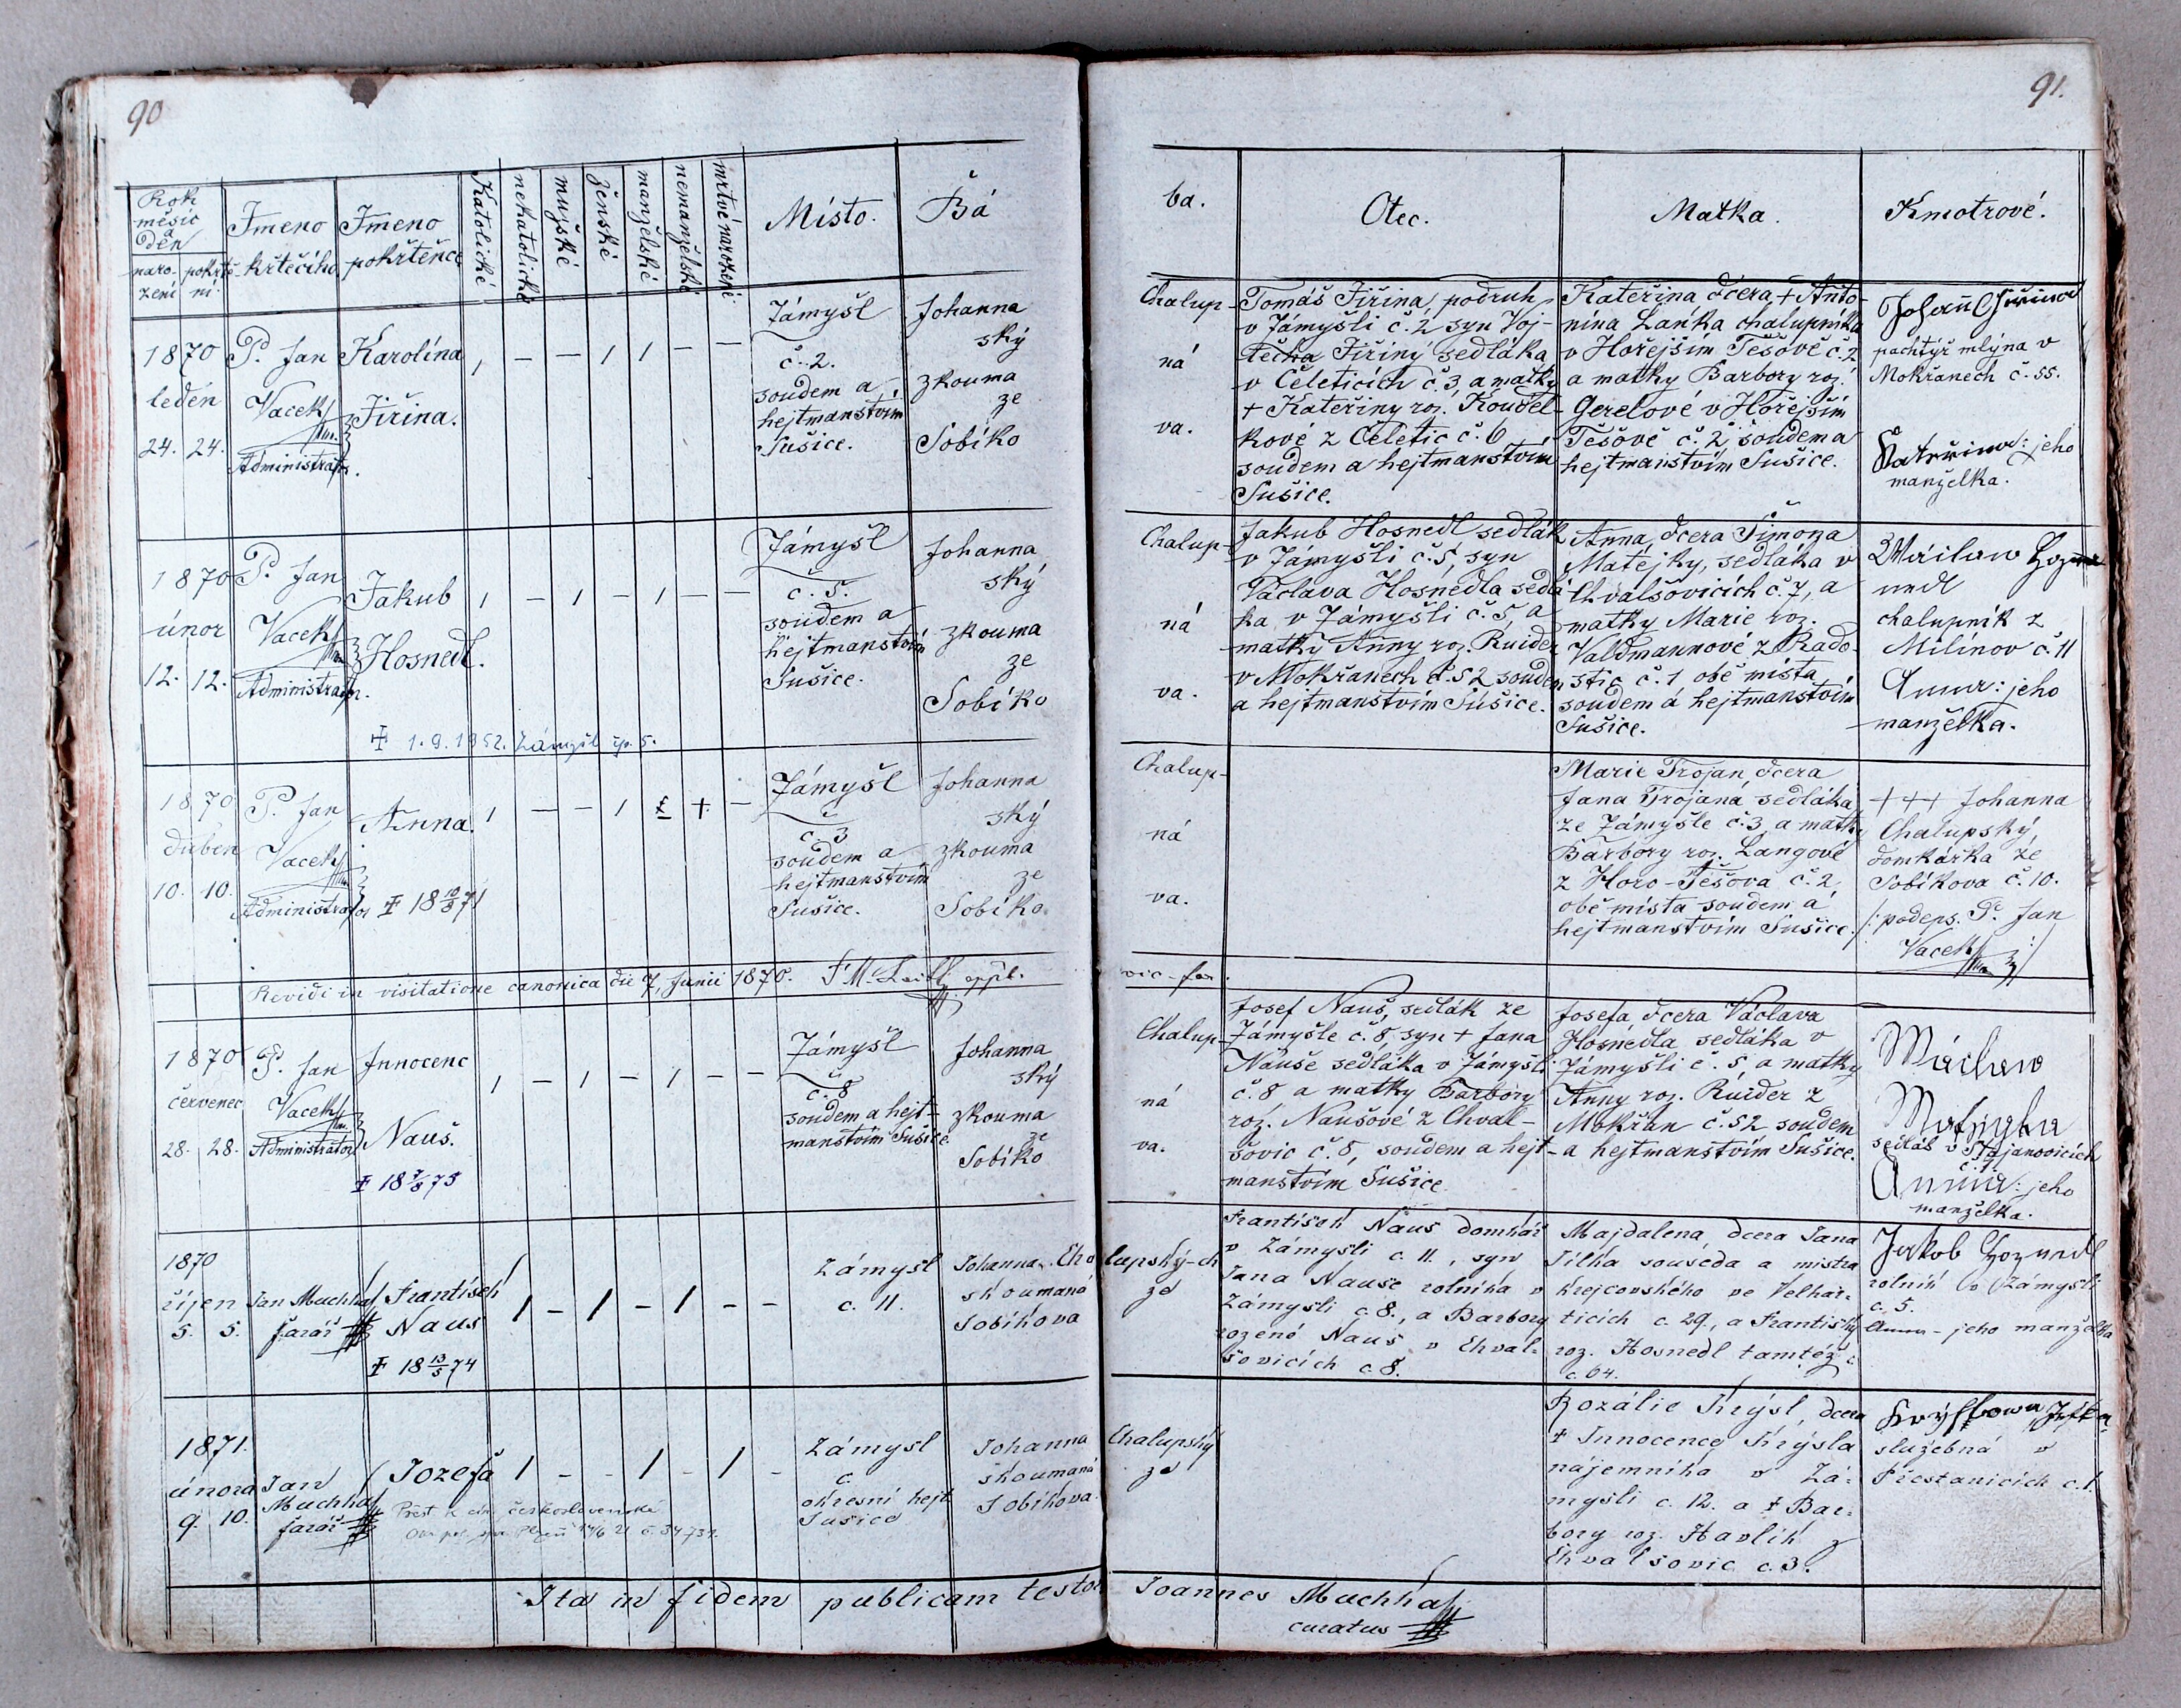 90
Rok
měsíc
a
den
naro-
zení
pokřtě-
ní.
Jmeno
křtěcího
Jmeno
pokřtěnce
Katolické
nekatolické
mužské
ženské
manželské
nemanželské
mrtvě narozené
Místo.
Bá
1870
leden
24. 24.
P. Jan
Vacek
Administrator.
Karolína
Jiřina.
/ — — / / — —
Zámyšl
č. 2.
soudem a
hejtmanstvím
Sušice.
Johanna
ský
zkouma
ze
Sobíko
1870
únor
12. 12.
P. Jan
Vacek
Administrator.
Jakub
Hosnedl.
/ — / — / — —
Zámyšl
č. 5.
soudem a
hejtmanstvím
Sušice.
Johanna
ský
zkouma
ze
Sobíko
1. 9. 1952. Zámyšl čp. 5.
1870
duben
10. 10.
P. Jan
Vacek
Administrator
Anna.
18 10/8 71
Zámyšl
č. 3
soudem a
hejtmanstvím
Sušice.
Johanna
ský
zkouma
ze
Sobíko
Revidi in visitatione canonica die 7. Junii 1870.
1870
červenec
28. 28.
P. Jan
Vacek
Administrator
Innocenc
Nauš.
/ — / — / — —
Zámyšl
č. 8
soudem a hejt-
manstvím Sušice.
Johanna
ský
zkouma
ze
Sobíko
1870
říjen
5. 5.
Jan Muchka
farář
František
Naus
18 13/5 74
/ - / - / - -
Zámysl
c. 11.
Johanna Cha
skoumaná
Sobíkova
1871.
února
9. 10.
Jan
Muchka
farář
Jozefa
/ - - / - / -
Zámysl
c.
okresní hejt.
Sušice
Johanna
skoumaná
Sobíkova.
Ita in fidem publicam testor
91.
ba.
Otec.
Matka.
Kmotrové.
Chalup-
ná
va.
Tomáš Jiřina, podruh
v Zámyšli č. 2, syn Voj-
těcha Jiřiny sedláka
v Čeleticích č. 3, a matky
+ Kateřiny roz. Koudel-
kové z Čeletic č. 6
soudem a hejtmanstvím
Sušice.
Kateřina dcera + Anto-
nína Laňka chalupníka
v Hořejším Těšově č. 2
a matky Barbory roz.
Gerelové v Hořejším
Těšově č. 2, soudem a
hejtmanstvím Sušice.
pachtýř mlýna v
Mokřanech č. 55.
jeho
manželka.
Chalup-
ná
va.
Jakub Hosnedl sedlák
v Zámyšli č. 5, syn
Václava Hosnedla sedlá
ka v Zámyšli č. 5, a
matky Anny roz. Ruider
v Mokřanech č. 52 soudem
a hejtmanstvím Sušice.
Anna, dcera Šimona
Matějky, sedláka v
Chvalšovicích č. 7, a
matky Marie roz.
Valdmannové z Rado-
stic č. 1 obě místa
soudem a hejtmanstvím
Sušice.
chalupník z
Milínov č. 11
Anna: jeho
manželka.
Chalup-
ná
va.
Marie Trojan, dcera
Jana Trojana sedláka
ze Zámyšle č. 3, a matky
Barbory roz. Langové
z Horo-Těšova č. 2,
obě místa soudem a
hejtmanstvím Sušice.
+++ Johanna
Chalupský,
domkářka ze
Sobíkova č. 10.
/: podeps. P. Jan
Vacek :/
Chalup-
ná
va.
Josef Nauš, sedlák ze
Zámyšle č. 8, syn + Jana
Nauše sedláka v Zámyšli
č. 8 a matky Barbory
roz. Naušové z Chval-
šovic č. 8, soudem a hejt-
manstvím Sušice
Josefa dcera Václava
Hosnedla sedláka v
Zámyšli č. 5, a matky
Anny roz. Ruider z
Mokřan č. 52 soudem
a hejtmanstvím Sušice.
Anna: jeho
manželka.
lupský-ch
ze
František Naus domkář
v Zámyšli c. 11., syn
Jana Nause rolníka v
Zámysli c. 8., a Barbory
rozené Naus v Chval-
šovicích c 8.
Majdalena, dcera Jana
Jílka souseda a mistra
krejcovského ve Velhar-
ticích c. 29, a Františky
roz. Hosnedl tamtéž
c. 64.
Jakob Hosnedl
rolník v Zámysli
c. 5.
Anna - jeho manželka
Chalupský
ze
Rozálie Krýsl, dcera
+ Innocence Krýsla
nájemníka v Zá-
mysli c. 12. a + Bar-
bory roz. Havlík z
Chvalsovic c. 3.
služebná v
Přestanicích c. 1.
Joannes Muchka
curatus